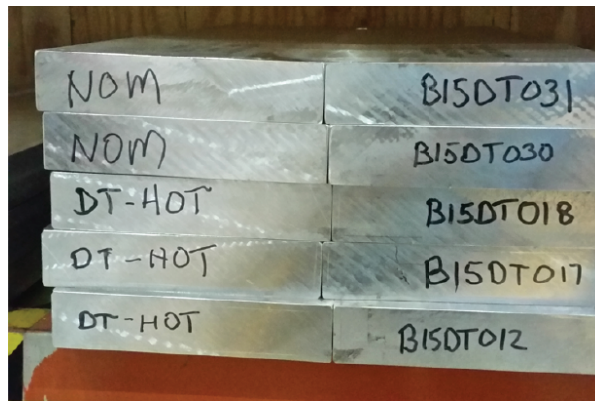 NOM B15DT031
NOM B15DT030
DT-HOT B15DT018
DT-HOT B15DT017
DT-HOT B15DT012